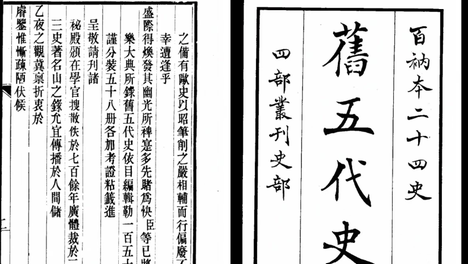 百衲本二十四史
舊五代史
四部叢刊史部
之備有歐史以昭筆削之嚴相輔而行偏廢不
幸遭逢乎
盛際得煥發其幽光所裨寔多先睹為快臣等已將
樂大典所錄舊五代史依目編輯勒一百五十
謹分裝五十八冊各加考證粘籤進
呈敬請刊諸
秘殿頒在學官搜散佚於七百餘年廣體裁於二
三史著名山之錄允宜傳播於人間儲
乙夜之觀冀禀折衷於
睿鑒惟慚疎陋伏候